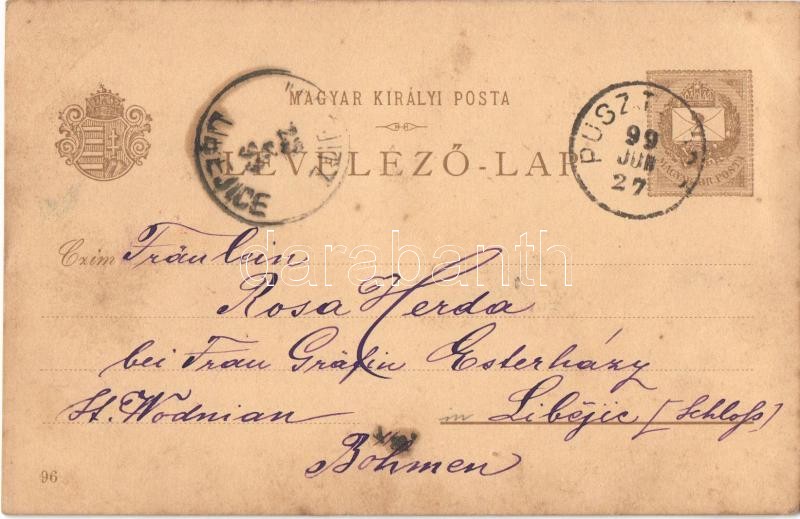 MAGYAR KIRÁLYI POSTA
LEVELEZŐ-LAP
LIBĚJICE
PUSZT
99
JUN
27
MAGYAR POSTA
Czim Fräulein
Rosa Herda
bei Frau Gräfin Esterházy
St. Wodnian in Libějic [Schloß]
Böhmen
96
darabanth